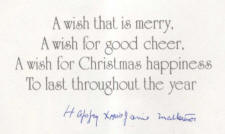 A wish that is merry,
A wish for good cheer,
A wish for Christmas happiness
To last throughout the year
Happy